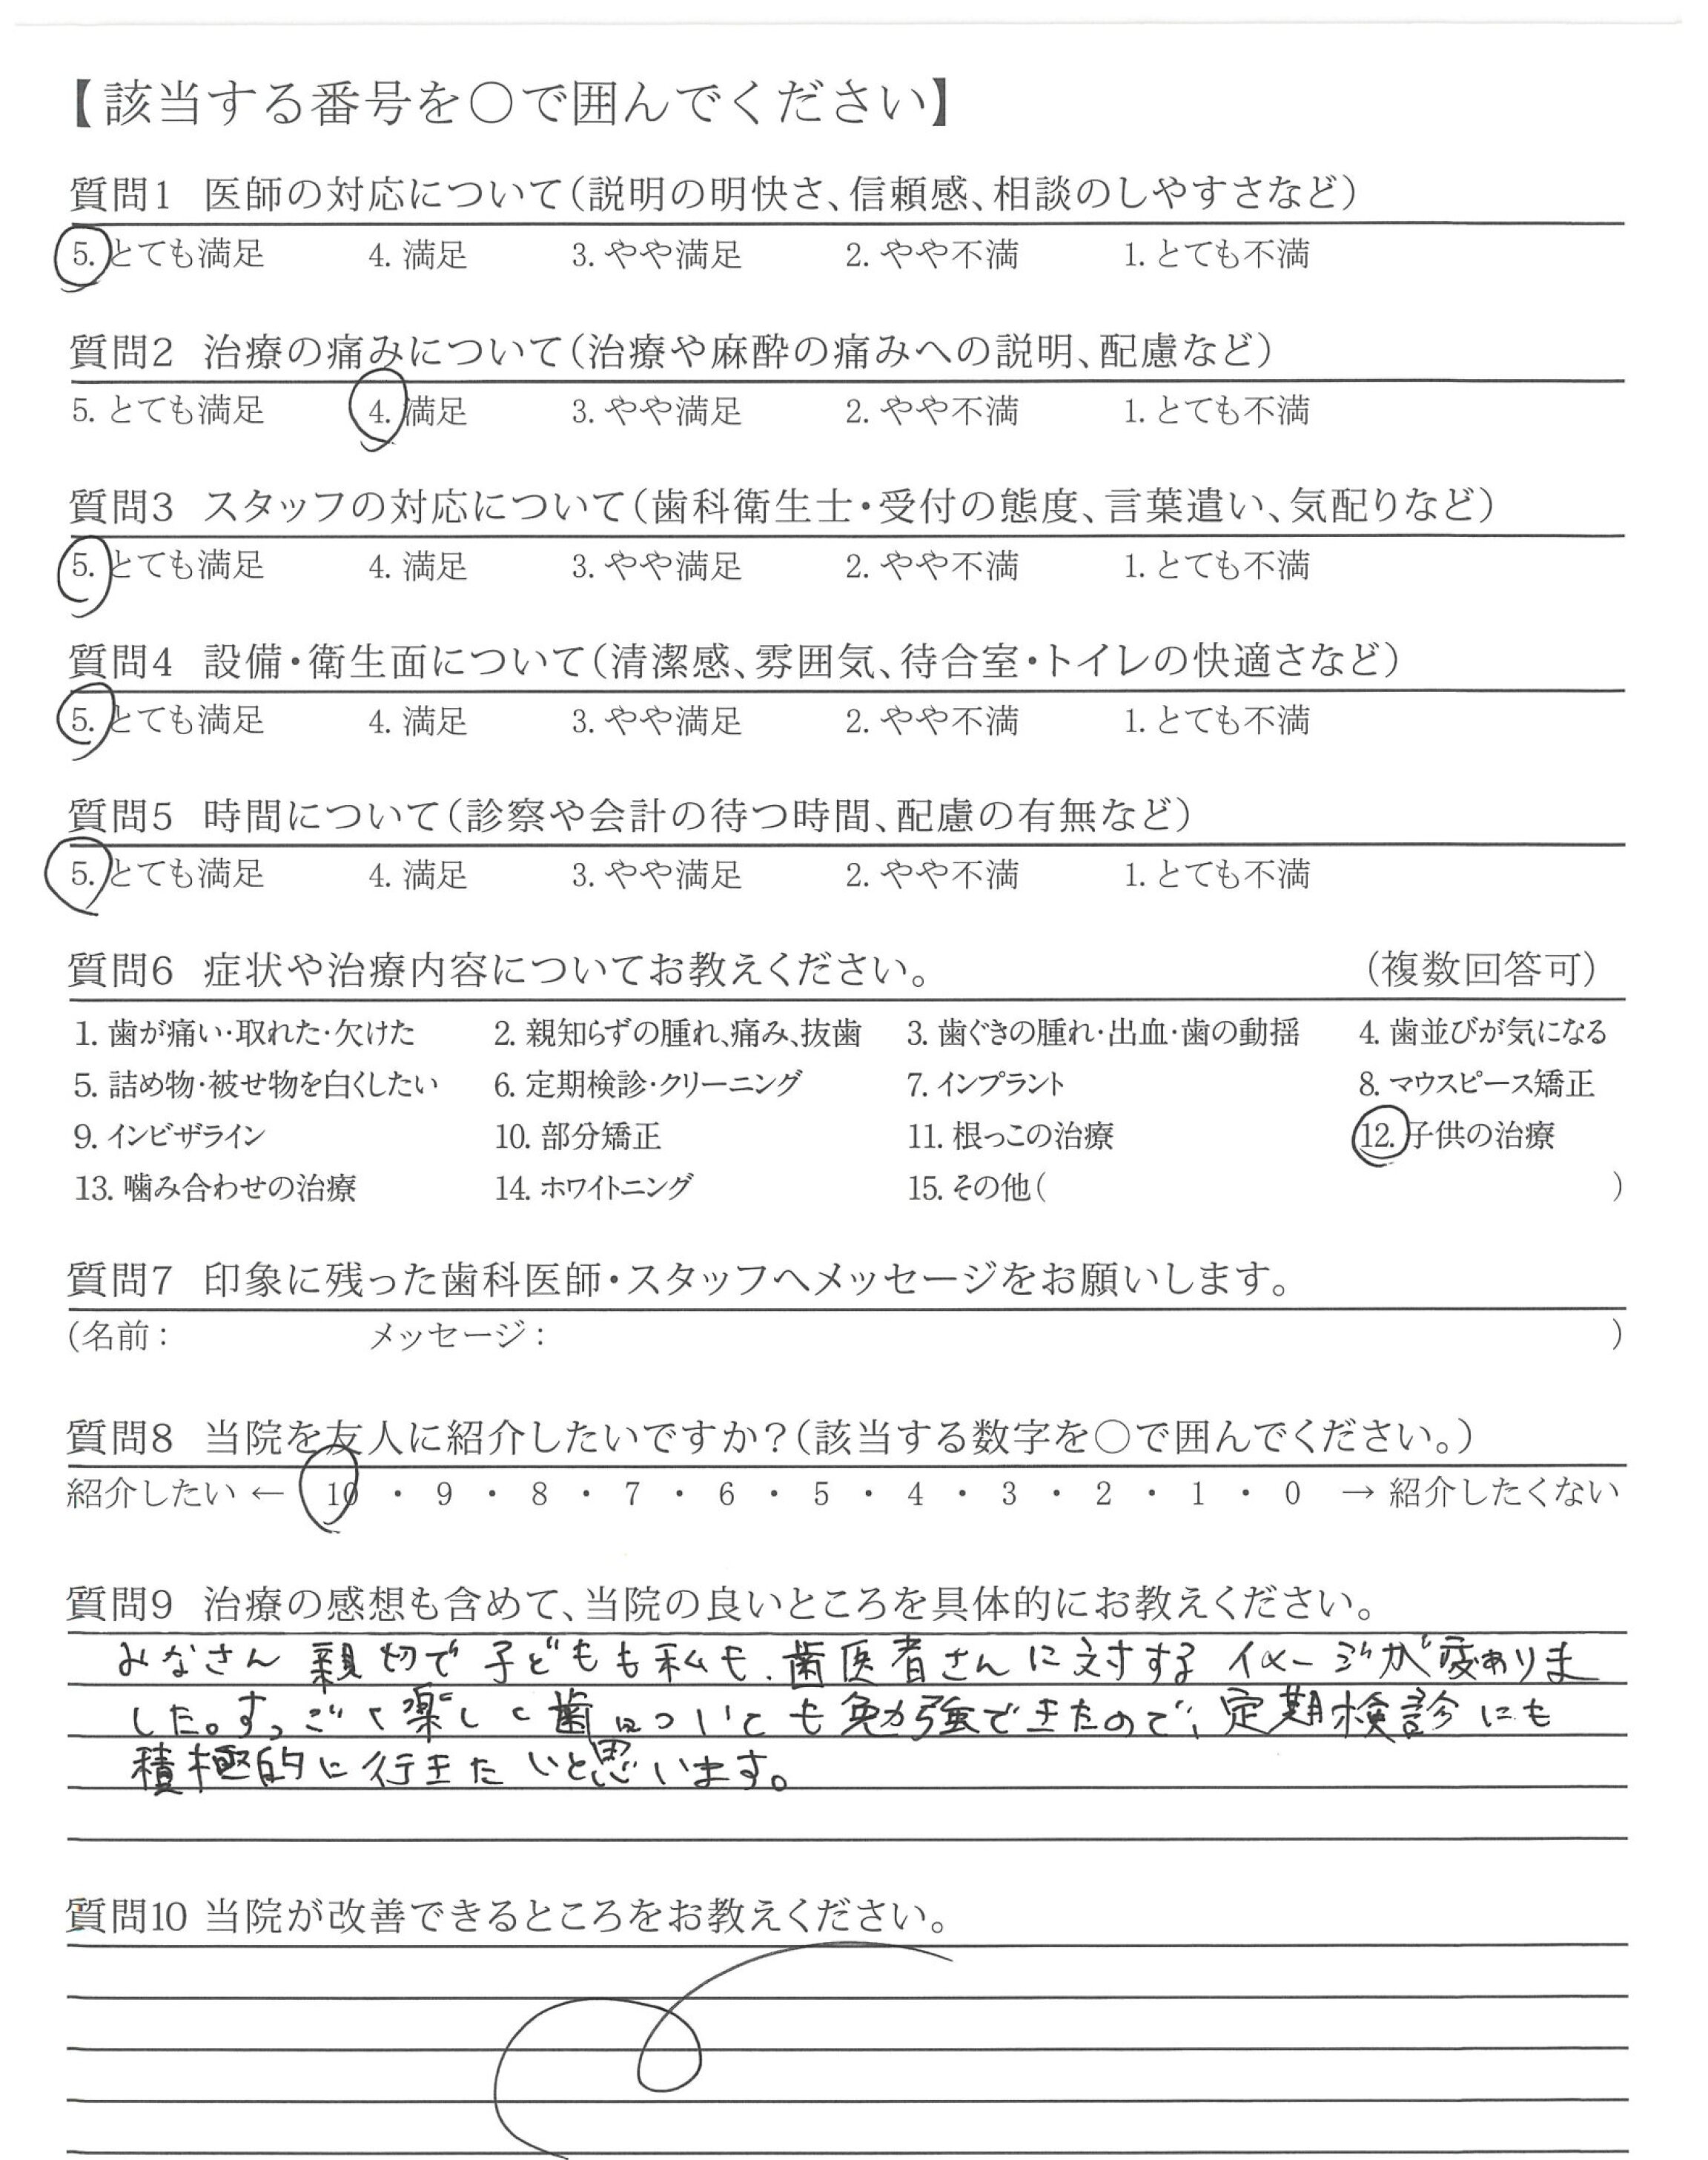 【該当する番号を〇で囲んでください】
質問1 医師の対応について(説明の明快さ、信頼感、相談のしやすさなど)
5. とても満足 4. 満足 3. やや満足 2. やや不満 1. とても不満
質問2 治療の痛みについて(治療や麻酔の痛みへの説明、配慮など)
5. とても満足 4. 満足 3. やや満足 2. やや不満 1. とても不満
質問3 スタッフの対応について(歯科衛生士・受付の態度、言葉遣い、気配りなど)
5. とても満足 4. 満足 3. やや満足 2. やや不満 1. とても不満
質問4 設備・衛生面について(清潔感、雰囲気、待合室・トイレの快適さなど)
5. とても満足 4. 満足 3. やや満足 2. やや不満 1. とても不満
質問5 時間について(診察や会計の待つ時間、配慮の有無など)
5. とても満足 4. 満足 3. やや満足 2. やや不満 1. とても不満
質問6 症状や治療内容についてお教えください。 (複数回答可)
1. 歯が痛い・取れた・欠けた 2. 親知らずの腫れ、痛み、抜歯 3. 歯ぐきの腫れ・出血・歯の動揺 4. 歯並びが気になる
5. 詰め物・被せ物を白くしたい 6. 定期検診・クリーニング 7. インプラント 8. マウスピース矯正
9. インビザライン 10. 部分矯正 11. 根っこの治療 12. 子供の治療
13. 噛み合わせの治療 14. ホワイトニング 15. その他( )
質問7 印象に残った歯科医師・スタッフへメッセージをお願いします。
(名前: メッセージ: )
質問8 当院を友人に紹介したいですか?(該当する数字を〇で囲んでください。)
紹介したい ← 10 ・ 9 ・ 8 ・ 7 ・ 6 ・ 5 ・ 4 ・ 3 ・ 2 ・ 1 ・ 0 → 紹介したくない
質問9 治療の感想も含めて、当院の良いところを具体的にお教えください。
みなさん 親切で 子どもも私も、歯医者さんに対する イメージが変わりま
した。すっごく楽しく歯についても勉強できたので、定期検診にも
積極的に行きたいと思います。
質問10 当院が改善できるところをお教えください。